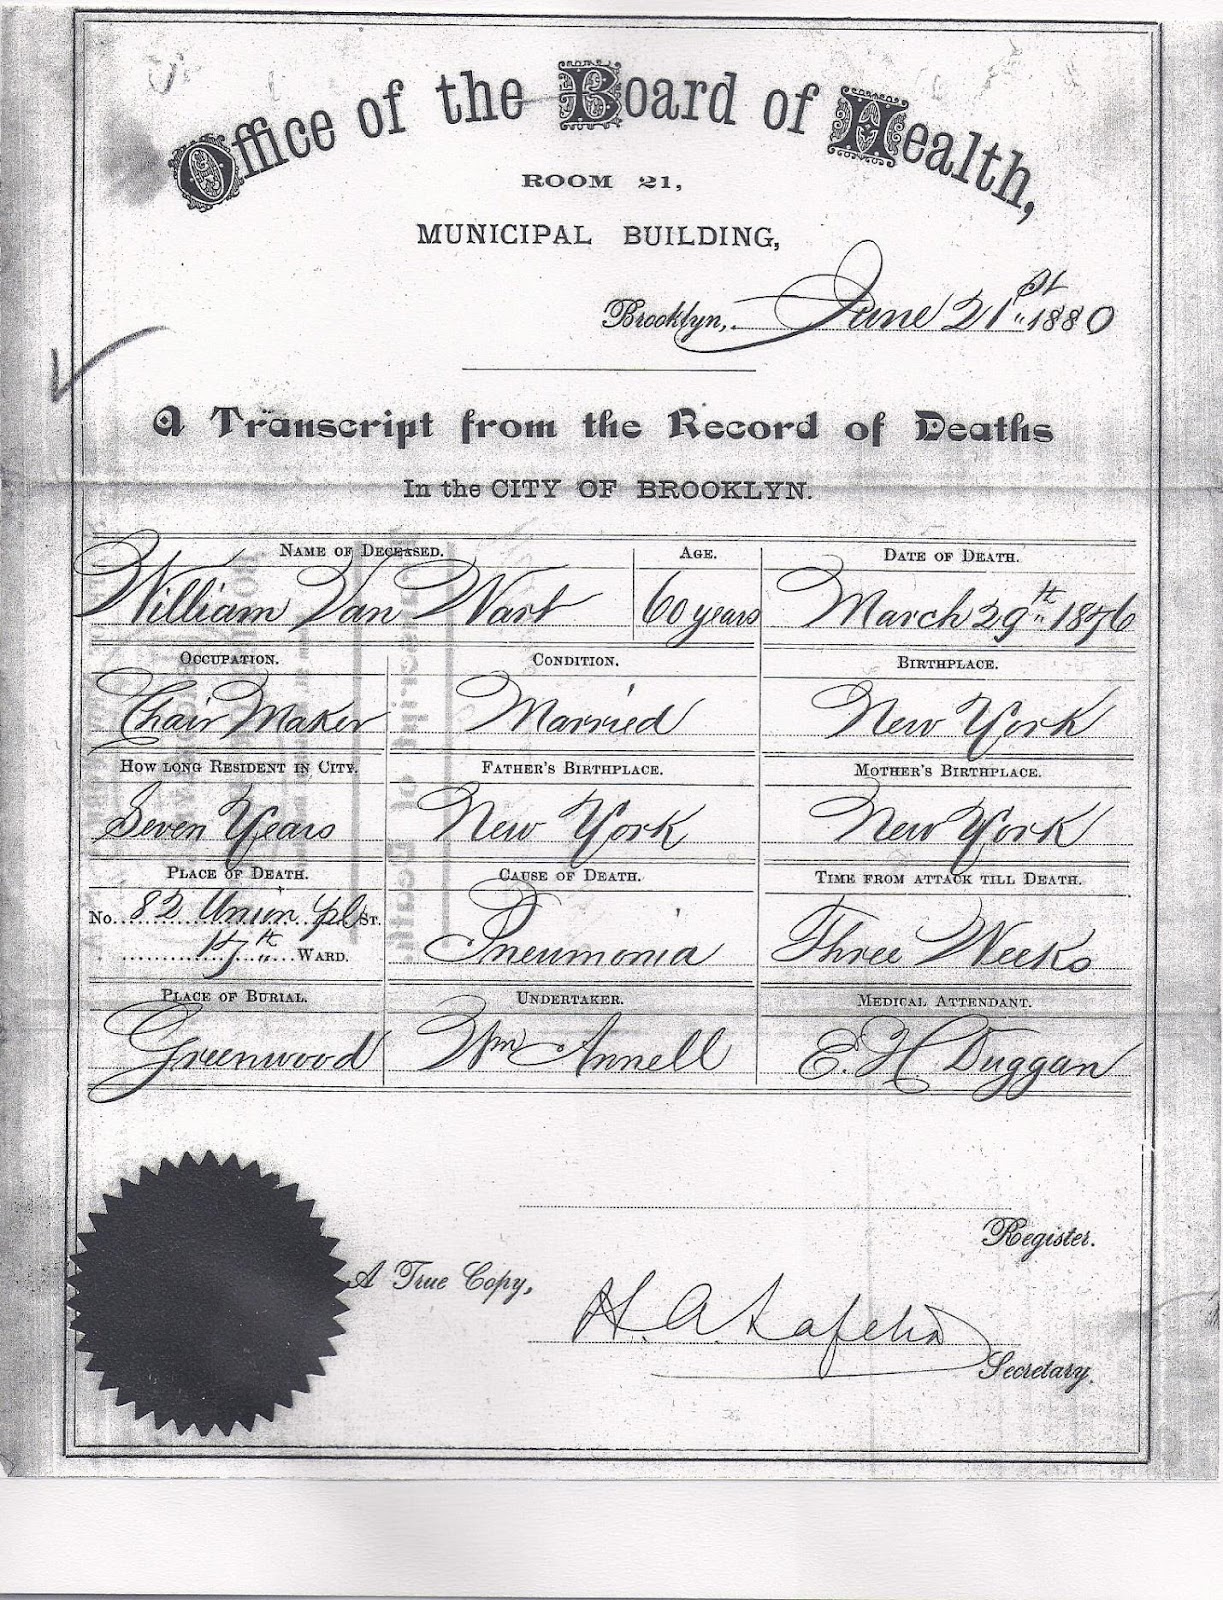 Office of the Board of Health,
ROOM 21,
MUNICIPAL BUILDING,
Brooklyn, June 21st 1880
A Transcript from the Record of Deaths
In the CITY OF BROOKLYN.
NAME OF DECEASED. AGE. DATE OF DEATH.
William Van Wart 60 years March 29th 1876
OCCUPATION. CONDITION. BIRTHPLACE.
Chair Maker Married New York
HOW LONG RESIDENT IN CITY. FATHER'S BIRTHPLACE. MOTHER'S BIRTHPLACE.
Seven Years New York New York
PLACE OF DEATH. CAUSE OF DEATH. TIME FROM ATTACK TILL DEATH.
No. 82 Union pl ST.
17th WARD. Pneumonia Three Weeks
PLACE OF BURIAL. UNDERTAKER. MEDICAL ATTENDANT.
Greenwood Wm Annell E. H. Duggan
Register.
A True Copy,
H. A.
Secretary.